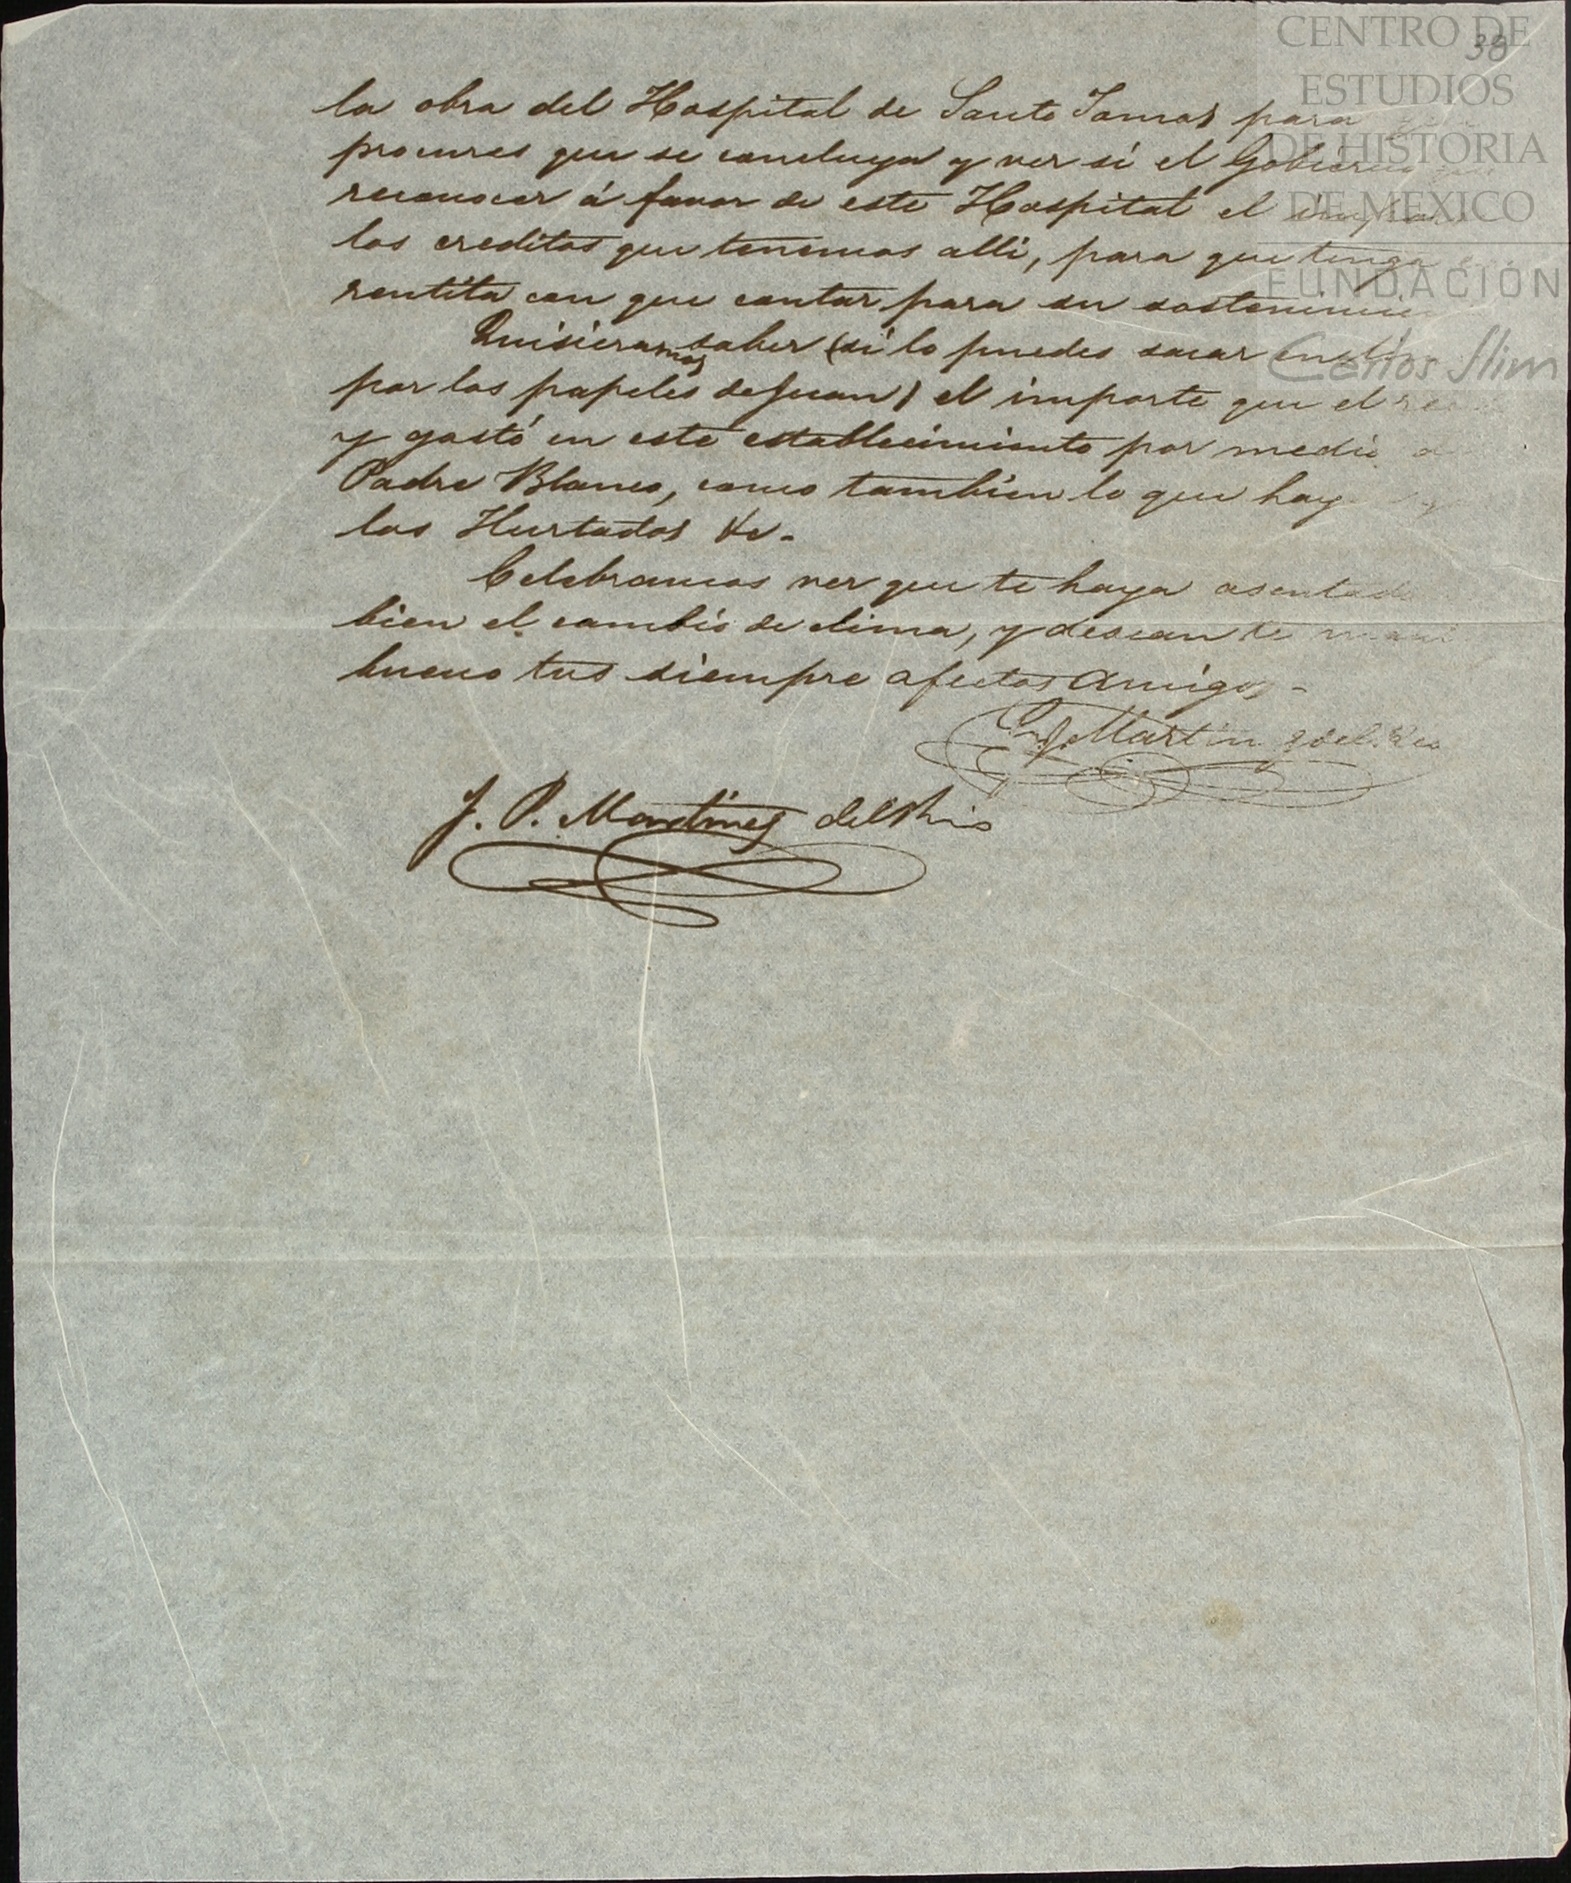 38
CENTRO DE
ESTUDIOS
DE HISTORIA
DE MEXICO
FUNDACIÓN
Carlos Slim
la obra del Hospital de Santo Tomas para que
procures que se concluya y ver si el Gobierno
reconocer á favor de este Hospital el
los creditos que tenemos alli, para que tenga
rentita con que contar para su
Quisieramos saber (si lo puedes sacar
por los papeles de Juan) el importe que el
y gastó en este establecimiento por medio
Padre Blanco, como tambien lo que hay
los Hurtados &c.
Celebramos ver que te haya asentado
bien el cambio de clima, y desean te
bueno tus siempre afectos Amigos
Martin z del Rio
J. P. Martinez del Rio